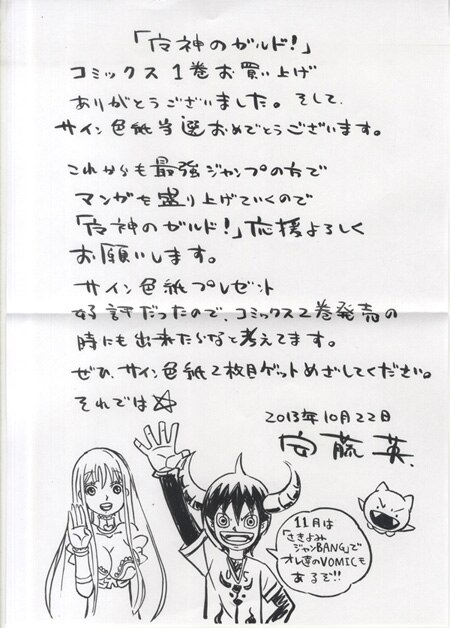 「女神のガルド!」
コミックス1巻お買い上げ
ありがとうございました。そして
サイン色紙当選おめでとうございます。
これからも最強ジャンプの方で
マンガを盛り上げていくので
「女神のガルド!」応援よろしく
お願いします。
サイン色紙プレゼント
好評だったので、コミックス2巻発売の
時にも出来たらなと考えてます。
ぜひ、サイン色紙2枚目ゲットめざしてください。
それでは☆
2013年10月22日
安藤英
11月は
「さきよみ
ジャンBANG」で
オレ達のVOMICも
あるぞ!!